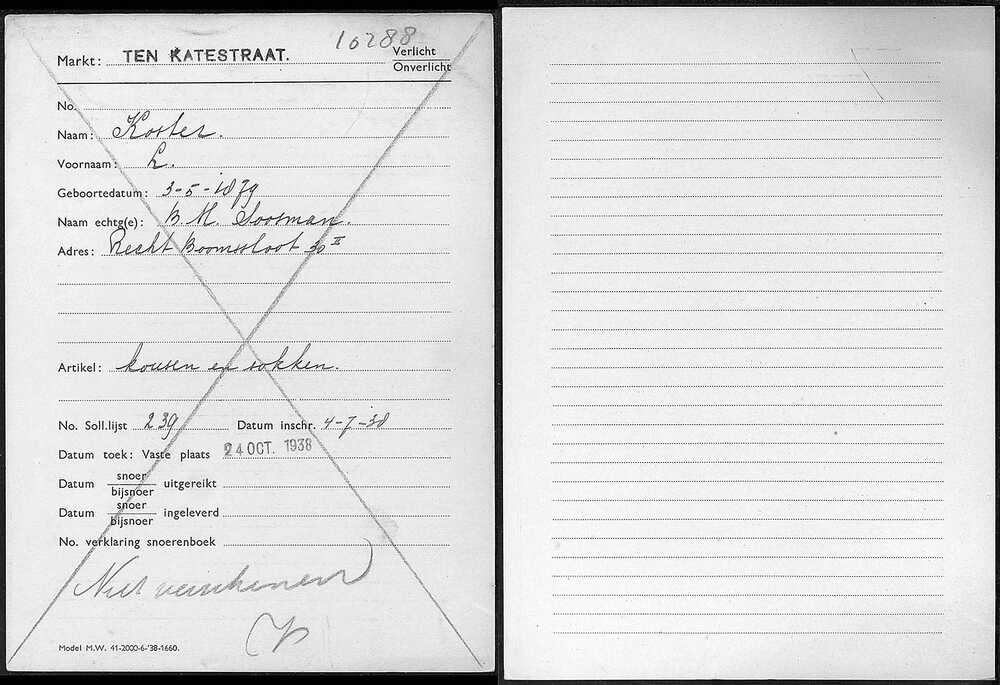 10288
Markt: TEN KATESTRAAT. Verlicht
Onverlicht
No.
Naam: Koster.
Voornaam: L.
Geboortedatum: 3-5-1879
Naam echtg(e): B. M. Soosman.
Adres: Recht Boomssloot 30 II
Artikel: kousen en sokken.
No. Soll.lijst 239 Datum inschr. 4-7-38
Datum toek: Vaste plaats 24 OCT. 1938
Datum snoer/bijsnoer uitgereikt
Datum snoer/bijsnoer ingeleverd
No. verklaring snoerenboek
Niet verschenen
Model M.W. 41-2000-6-'38-1660.